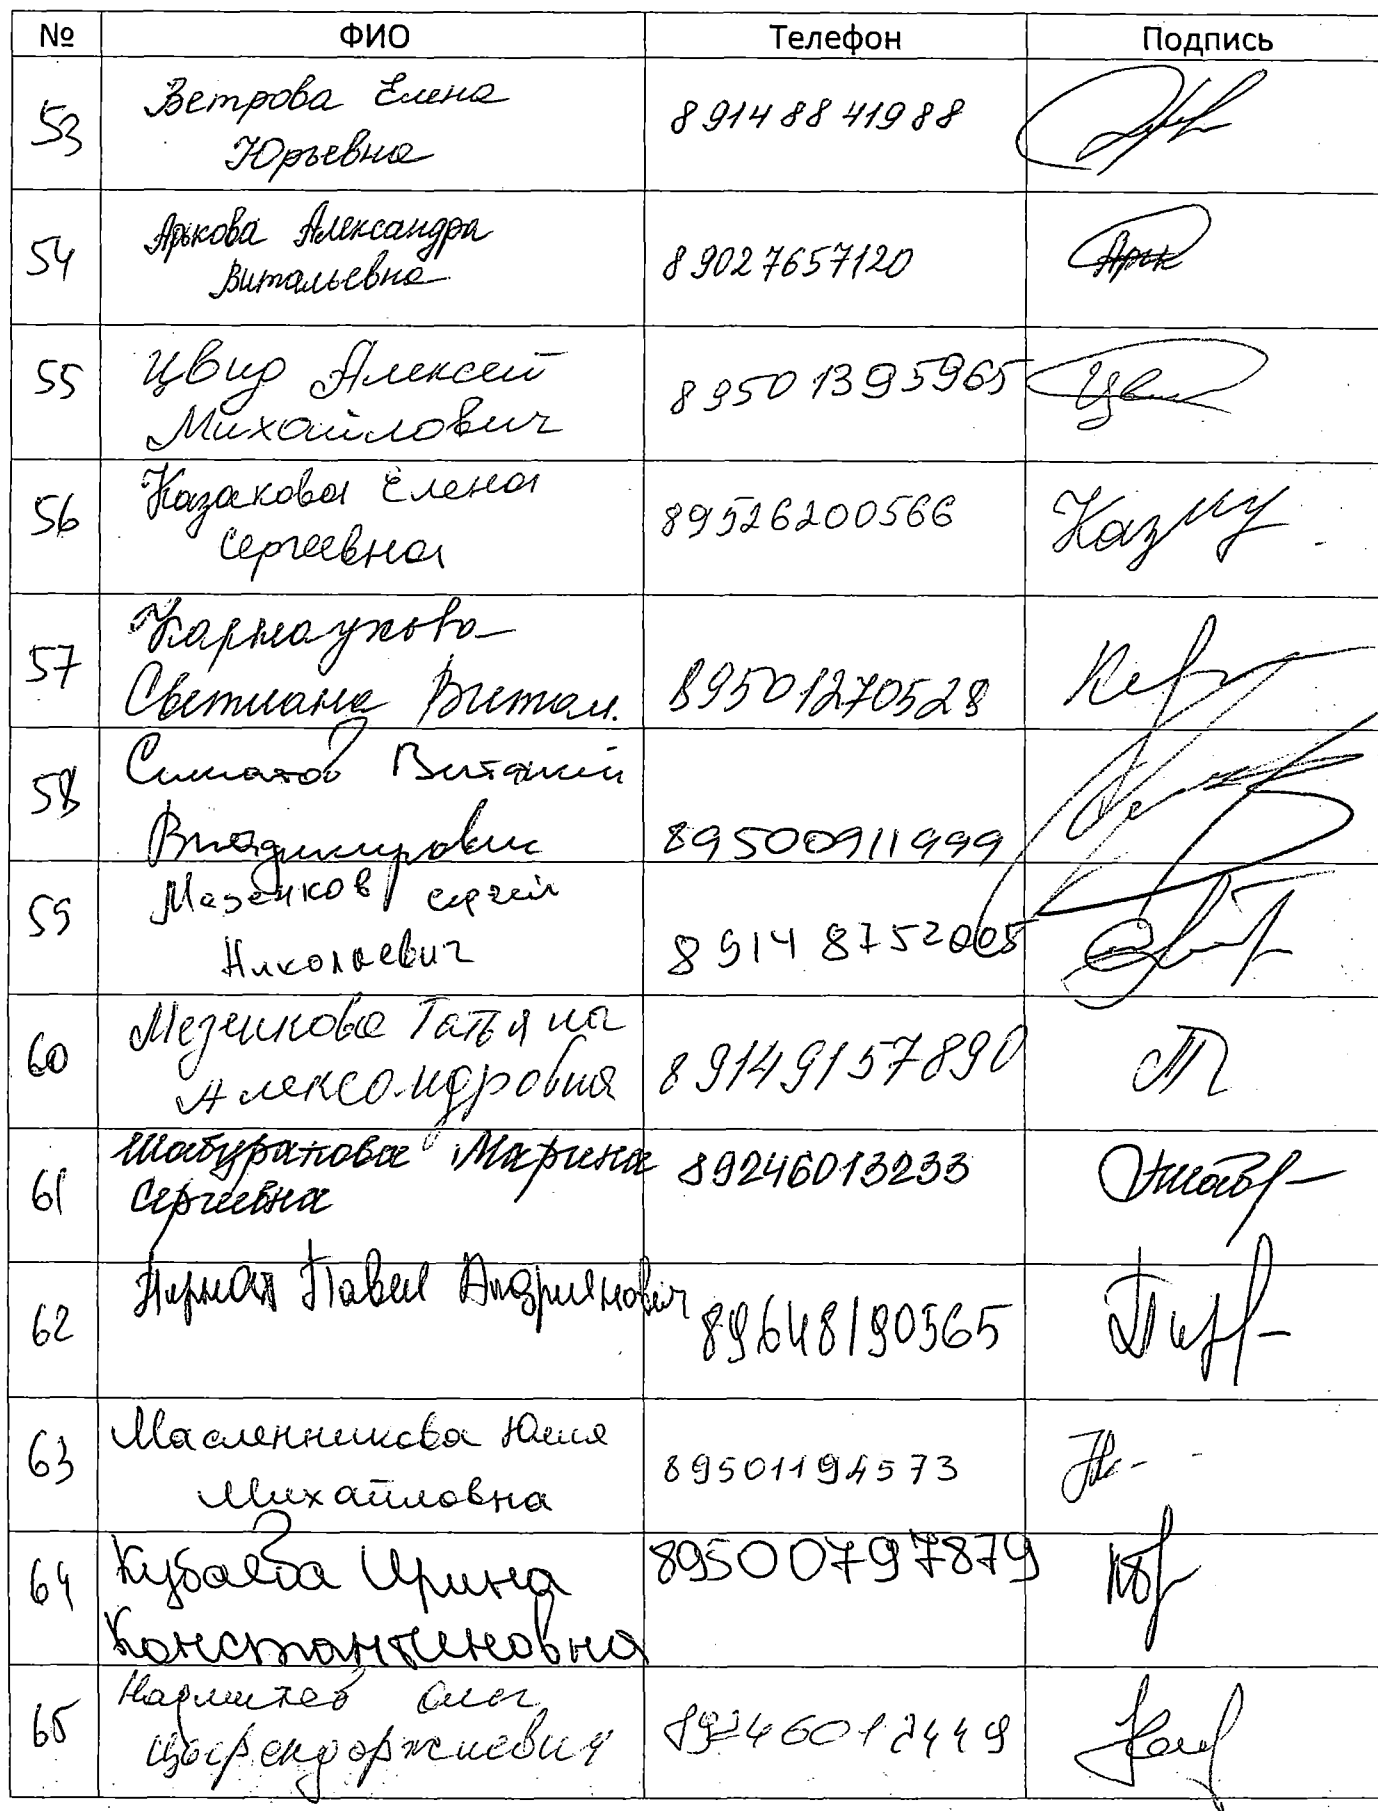 № ФИО Телефон Подпись
53 Ветрова Елена
Юрьевна 8 914 88 41988
54 Арькова Александра
Витальевна 8 9027657120 Арьк
55 Цвид Алексей
Михайлович 8 950 1395965 Цви
56 Казакова Елена
Сергеевна 89526200566 Каз
57 Карнаухова
Светлана Витал. 89501270528
58 Виталий
Владимирович 89500911999
59 Мезенков Сергей
Николаевич 8 914 8752005
60 Мезенкова Татьяна
Александровна 8 9149157890
61 Шабуратова Марина
Сергеевна 89246013233
62 Павел Андриянович
89648190565
63 Масленникова Юлия
Михайловна 89501194573
64 Кубаева Ирина
Константиновна 89500797879
65 Олег
Цырендоржиевич 89246012449